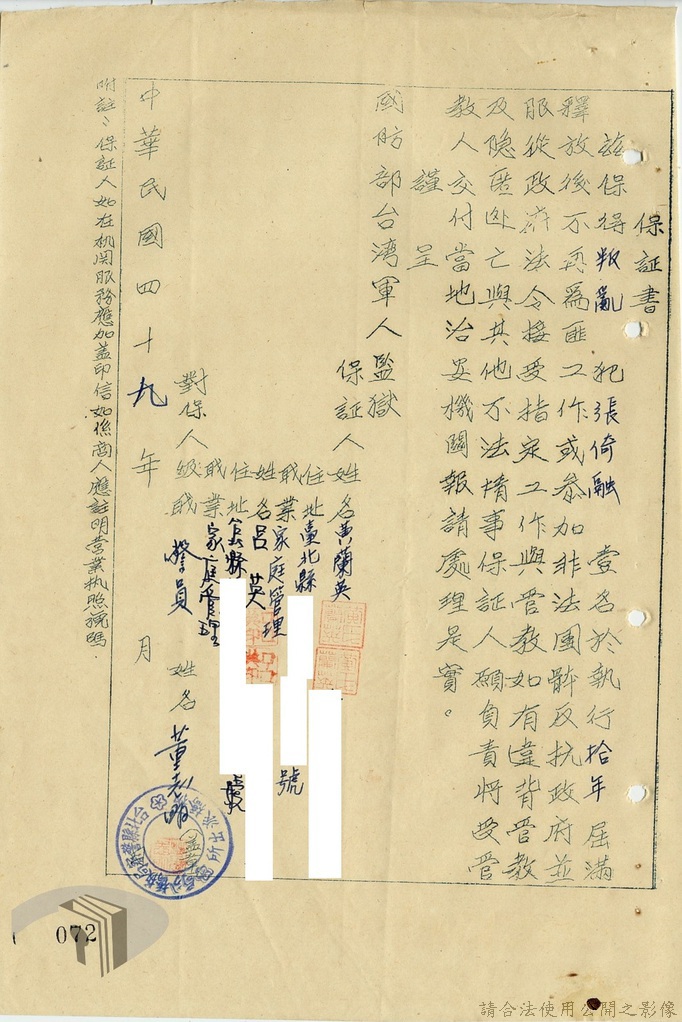 保証書
茲保得叛亂犯張倚融壹名於執行拾年屆滿
釋放後不再為匪工作或參加非法團體反抗政府並
服從政府法令接受指定工作與管教如有違背管教
及隐匿逃亡與其他不法情事保証人願負責將受管
教人交付當地治安機關報請處理是實。
謹呈
國防部台湾軍人監獄
保証人姓名黃蘭英
住址臺北縣 號
職業家庭管理
姓名呂英
住址台北縣 號
職業家庭管理
對保人級職警員 姓名董彪
中華民國四十九年 月
附註：保証人如在机関服務應加蓋印信，如係商人應註明營業执照號碼．
072
請合法使用公開之影像